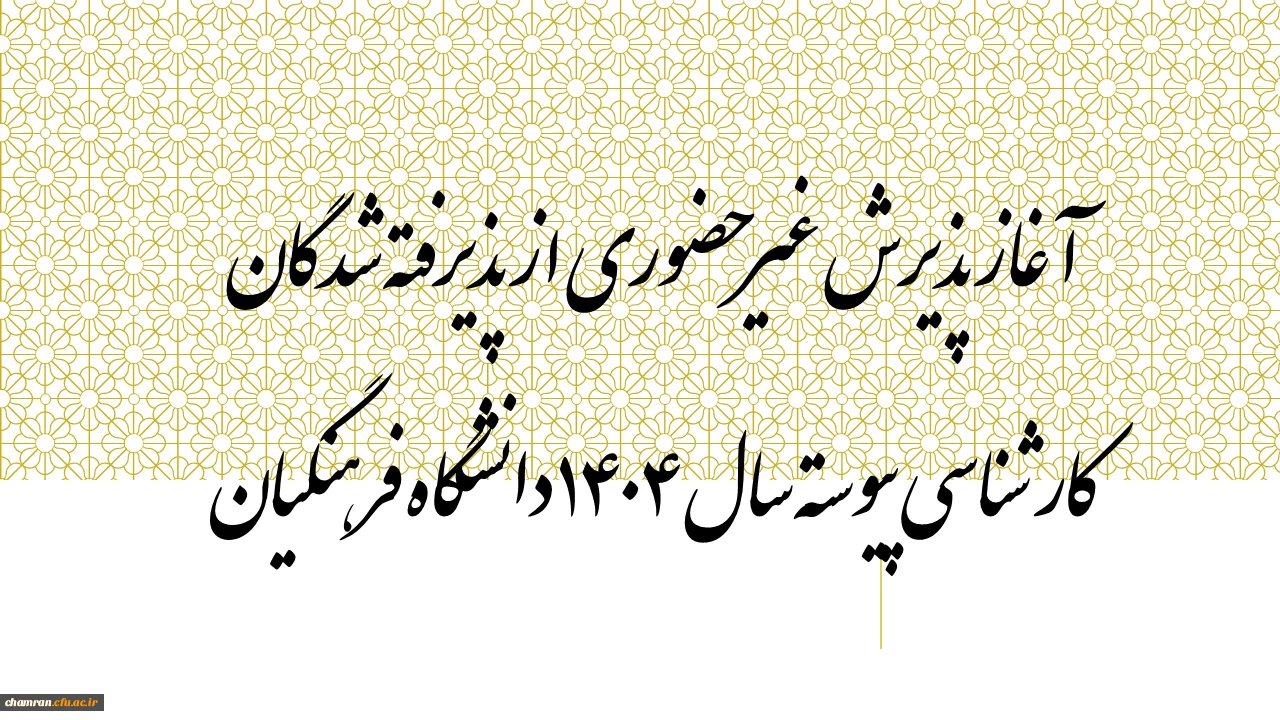 آغاز پذیرش غیرحضوری از پذیرفته‌شدگان
کارشناسی پیوسته سال ۱۴۰۴ دانشگاه فرهنگیان
chamran.cfu.ac.ir